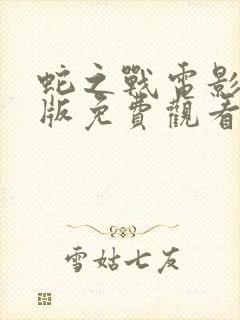 蛇之戰電影
版免費觀看
雪姑七友